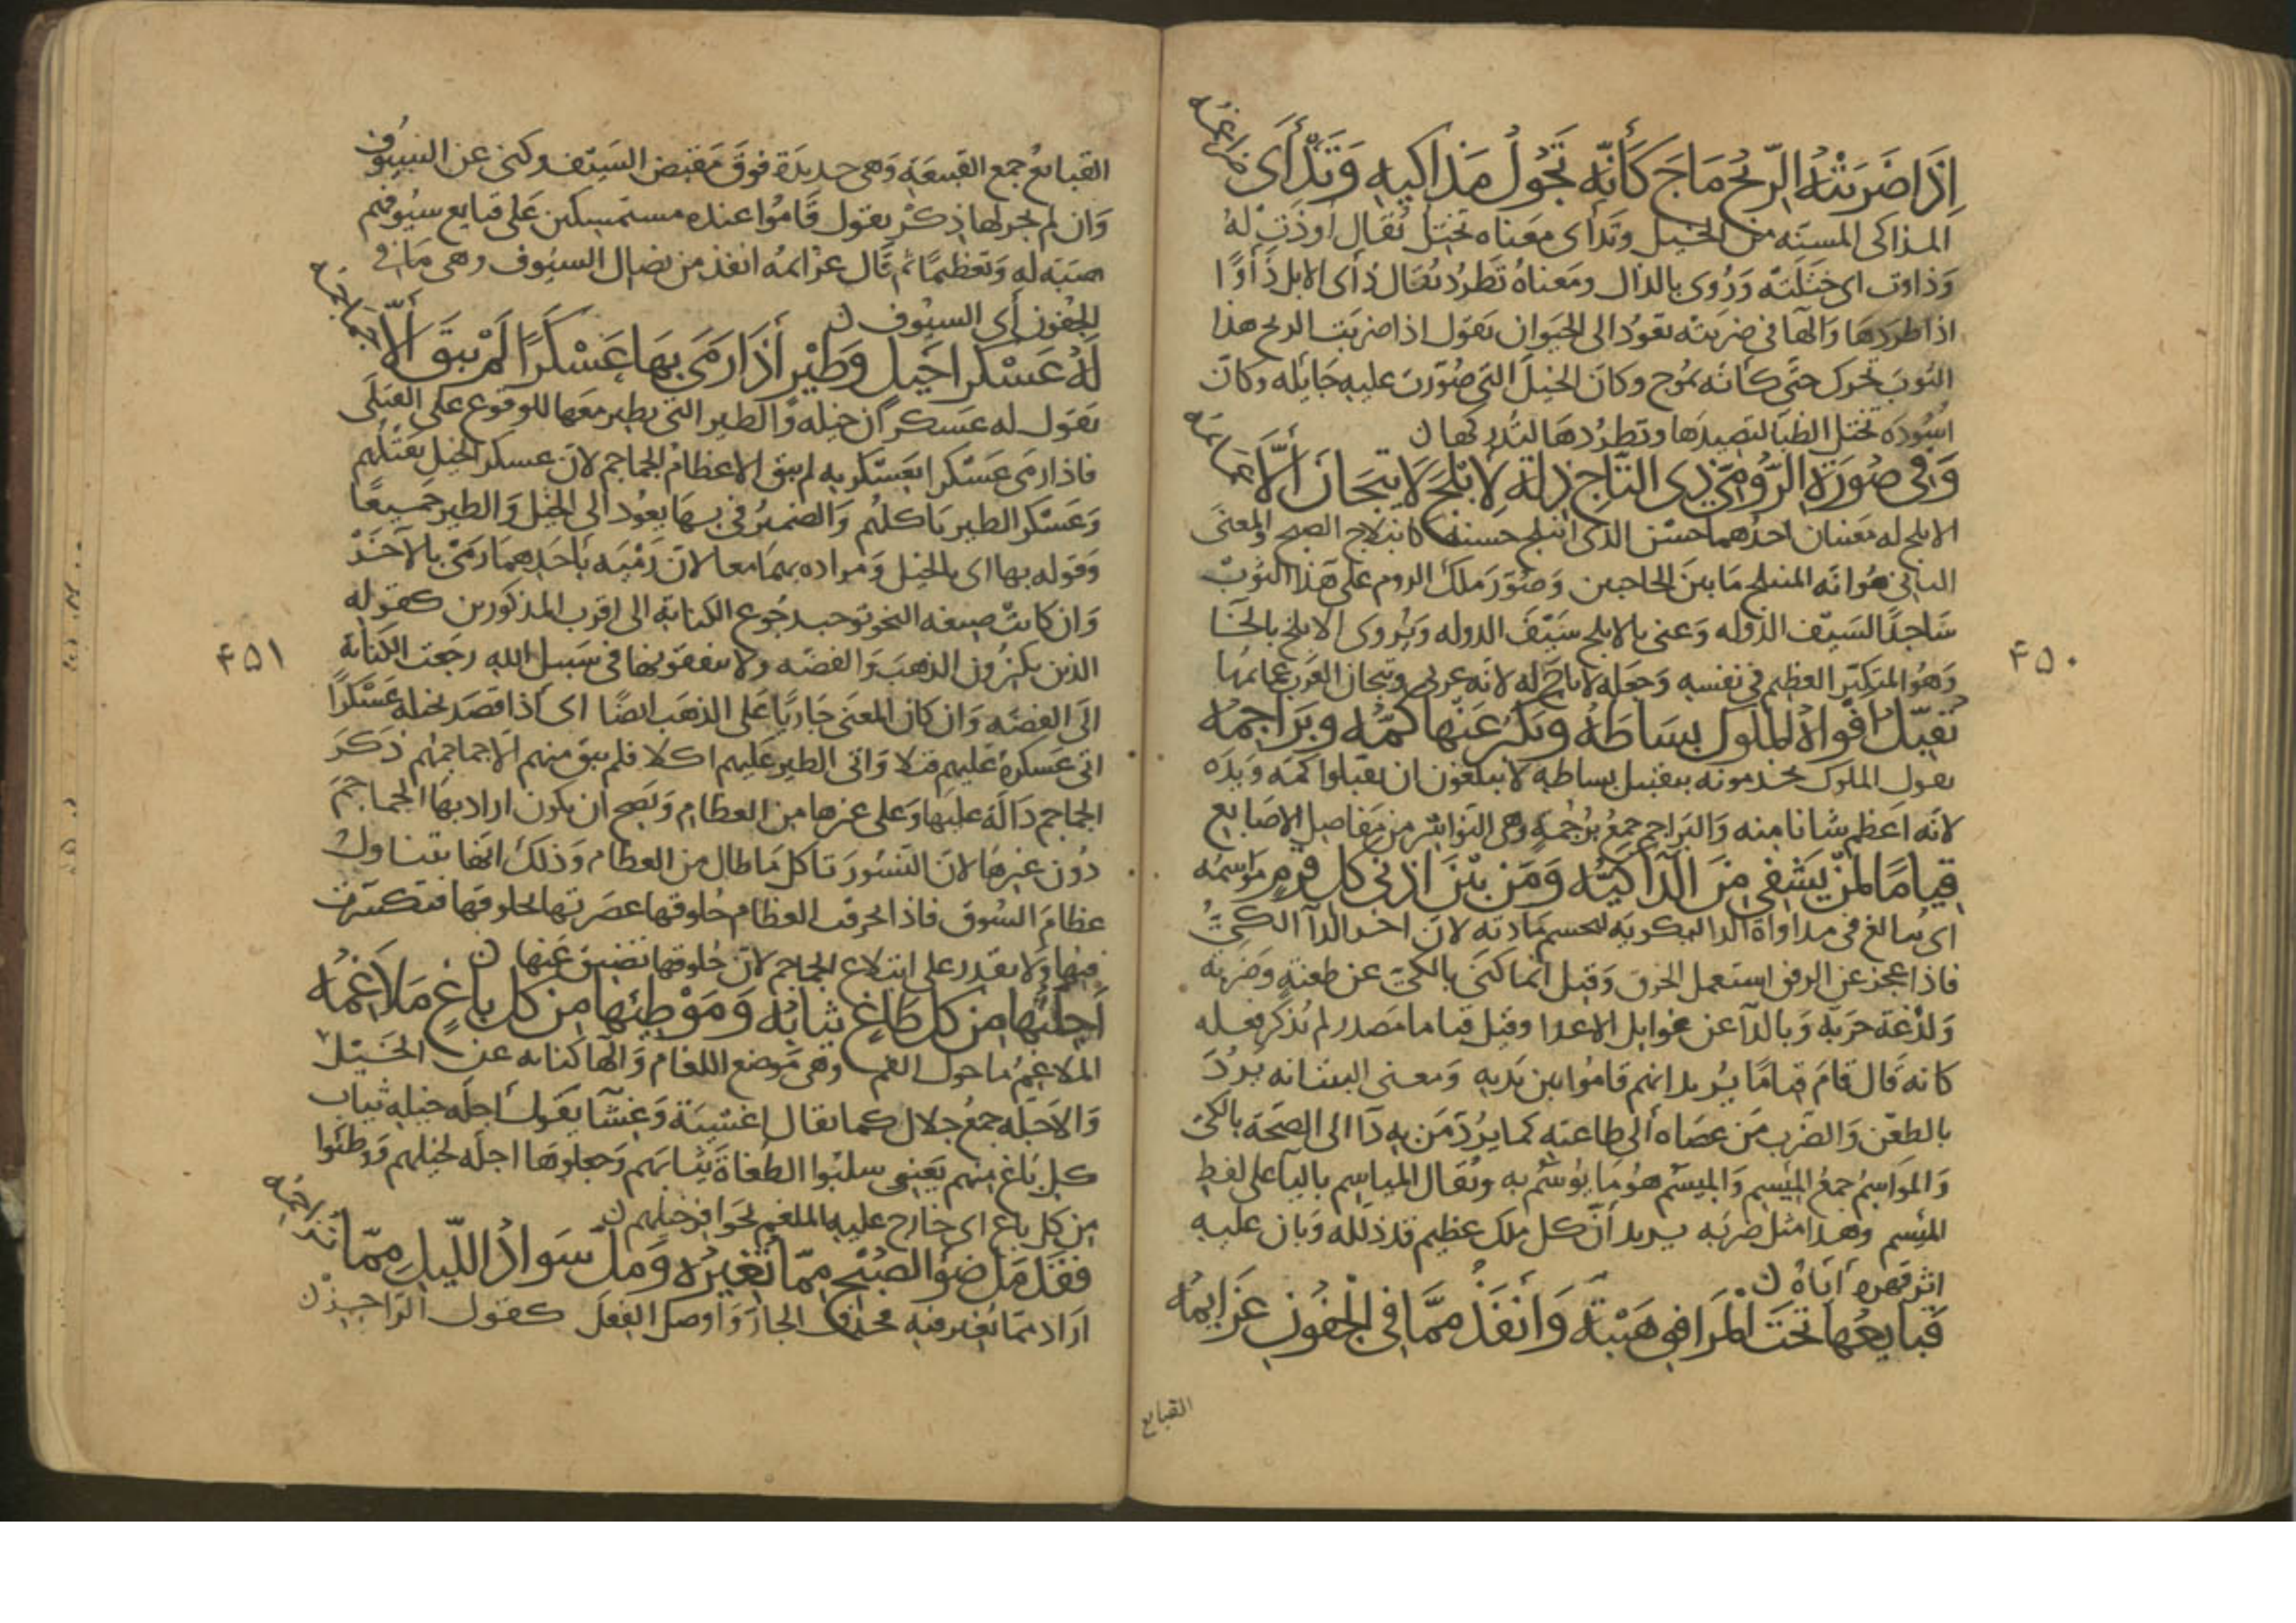 اِذَا ضَرَبَتْهُ الرِّيحُ مَاجَ كَأَنَّه تَجُولُ مَذاكِيهِ وَتَدْأَى ضراغمه
المذاكى المسنه من الخيل وتدأى معناه تختل يقال اوذت له
وذاوت اى ختلته وروى بالدال ومعناه تطرد يقال ذأى الابل ذأوا
اذا طردها والها فى ضربته تعود الى الحيوان يقول اذا ضربت الريح هذا
الثوب تحرك حتى كانه يموج وكان الخيل التى صورت عليه جايله وكان
اسوده تختل الظبا لتصيدها وتطردها لتدركها ن
وَفى صُورَةِ الرُّومىِّ ذِى التَّاجِ ذِلَّةٌ لِأَبْلَجَ لَا تِيجَانَ اِلَّا عمايمه
الابلج له معنيان احدهما حسن الذى ابتلج حسنه كانبلاج الصبح والمعنى
الثانى هو انه المنبلج ما بين الحاجبين وصور ملك الروم على هذا الثوب
ساجدًا لسيف الدوله وعنى بالابلج سيف الدوله ويروى الابلخ بالخا
وهو المتكبر العظيم فى نفسه وجعله لا تاج له لانه عربى وتيجان العرب عمايمها
تُقَبِّلُ افْوَاهُ الْمُلُوكِ بِسَاطَهُ وَيَكْبُرُ عَنْهَا كُمُّه وبَرَاجِمُه
يقول الملوك يخدمونه بتقبيل بساطه لا يبلغون ان يقبلوا كمه ويده
لانه اعظم شانا منه والبراجم جمع برجمه وهى النواشر من مفاصل الاصابع
قِيامًا لِمَنْ يَشْفِى مِنَ الدَّآءِ كَيُّه وَمَن بَيْنَ اذنى كل قرم مواسمه
اى يبالغ فى مداواة الدا بكيه ليحسم مادته لان اخر الدآ الكىّ
فاذا عجز عن الرفق استعمل الخرق وقيل انما كنى بالكى عن طعنه وضربه
ولذعة حربه وبالدآ عن غوايل الاعدا وقيل قياما مصدر لم يذكر فعله
كانه قال قام قياما يريد انهم قاموا بين يديه ومعنى البيت انه يردّ
بالطعن والضرب من عصاه الى طاعته كما يردّ من به دآ الى الصحة بالكى
والمواسم جمع الميسم والميسم هو ما يوسم به ويقال المياسم باليا على لفظ
الميسم وهذا مثل ضربه يريد أنّ كل ملك عظيم قد ذلله وبان عليه
اثر قهره اياه ن
قَبايعُها تَحْتَ الْمَرَافِقِ هَيْبَةً وَأَنْفَذُ مِمَّا فِى الْجُفُونِ عَزَايِمُه
القبايع
۴۵۰
القبايعُ جمع القبيعة وهى حديدة فوق مقبض السيف وكنى عن السيوف
وان لم يجر لها ذكر يقول قاموا عنده مستمسكين على قبايع سيوفهم
هيبة له وتعظيما ثم قال عزايمه انفذ من نصال السيوف وهى ما فى
الجفون أى السيوف ن
لَهُ عَسْكَرا خَيلٍ وَطَيْرٍ أذَا رَمَى بِهَا عَسْكَرًا لَمْ يَبْقَ اِلَّا جماجمه
يقول له عسكران خيله والطير التى يطير معها للوقوع على القتلى
فاذا رمى عسكرا بعسكريه لم يبق الا عظام الجماجم لان عسكر الخيل يقتلهم
وعسكر الطير ياكلهم والضمير فى بها يعود الى الخيل والطير جميعًا
وقوله بها اى بالخيل ومراده بهما معا لان رميه باحدهما رمى بالآخر
وان كانت صيغه النحو توجب رجوع الكنايه الى اقرب المذكورين كقوله
الذين يكنزون الذهب والفضه ولا ينفقونها فى سبيل الله رجعت الكنايه
الى الفضه وان كان المعنى جاريًا على الذهب ايضًا اى اذا قصد بخيله عسكرًا
اتى عسكره عليهم قتلا واتى الطير عليهم اكلا فلم يبق منهم الا جماجمهم ذكر
الجماجم دالة عليها وعلى غيرها من العظام ويصح ان يكون اراد بها الجماجم
دون غيرها لان النسور تاكل ما طال من العظام وذلك انها تتناول
عظام السوق فاذا احرقت العظام حلوقها عصرتها لحلوقها فتكسرت
فيها ولا تقدر على ابتلاع الجماجم لان حلوقها تضيق عنها ن
أَجِلَّتُها مِن كل طَاغٍ ثِيابُه وَمَوْطِئُها مِن كل باغٍ مَلاغِمُه
الملاغم ما حول الفم وهى موضع اللغام والها كنايه عن الخيل
والاجله جمع جلال كما يقال اغشية وغشا يقول اجله خيله ثياب
كل باغ منهم يعنى سلبوا الطغاة ثيابهم وجعلوها اجله لخيلهم ووطئوا
من كل باغ اى خارج عليه بالملغم لحوافر خيلهم ن
فَقَدْ مَلَّ ضَوْءُ الصُّبْحِ مِمّا تُغِيرُه وَمَلّ سَوَادُ اللَّيلِ مِمّا تزاحمه
اراد مما تغير فيه فحذف الجار واوصل الفعل كقول الراجز ن
۴۵۱